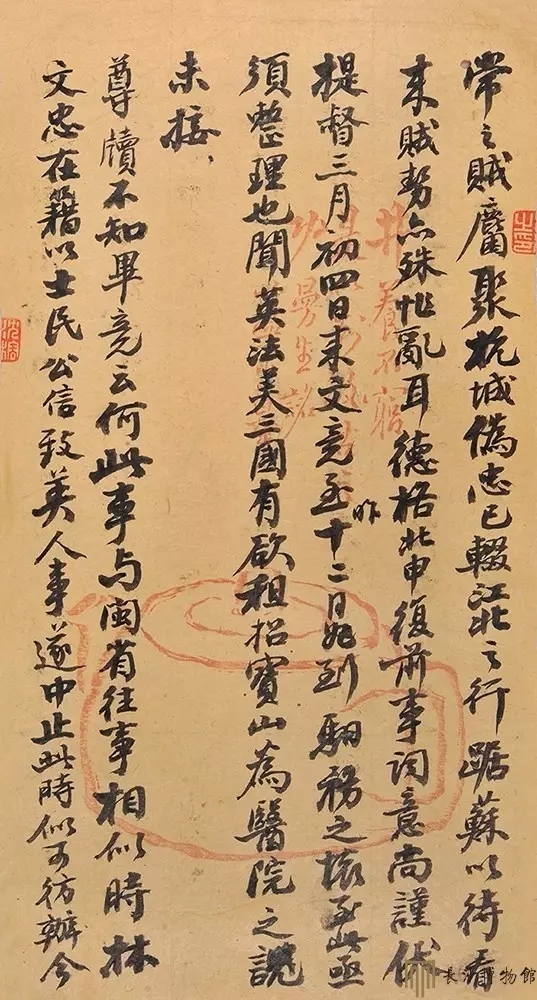 常之賊麕聚杭城偽忠已輟江北之行踞蘇以待看
來賊勢亦殊忙亂耳德格北申復前事詞意尚謹伏
提督三月初四日來文竟至昨十二日始到驛務之壞至此亟
須整理也聞英法美三國有欲租招寶山為醫院之說
未接
尊牘不知畢竟云何此事与閩省往事相似時林
文忠在籍以士民公信致英人事遂中止此時似可仿辦今
沈
長沙博物館